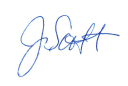 J. Scott